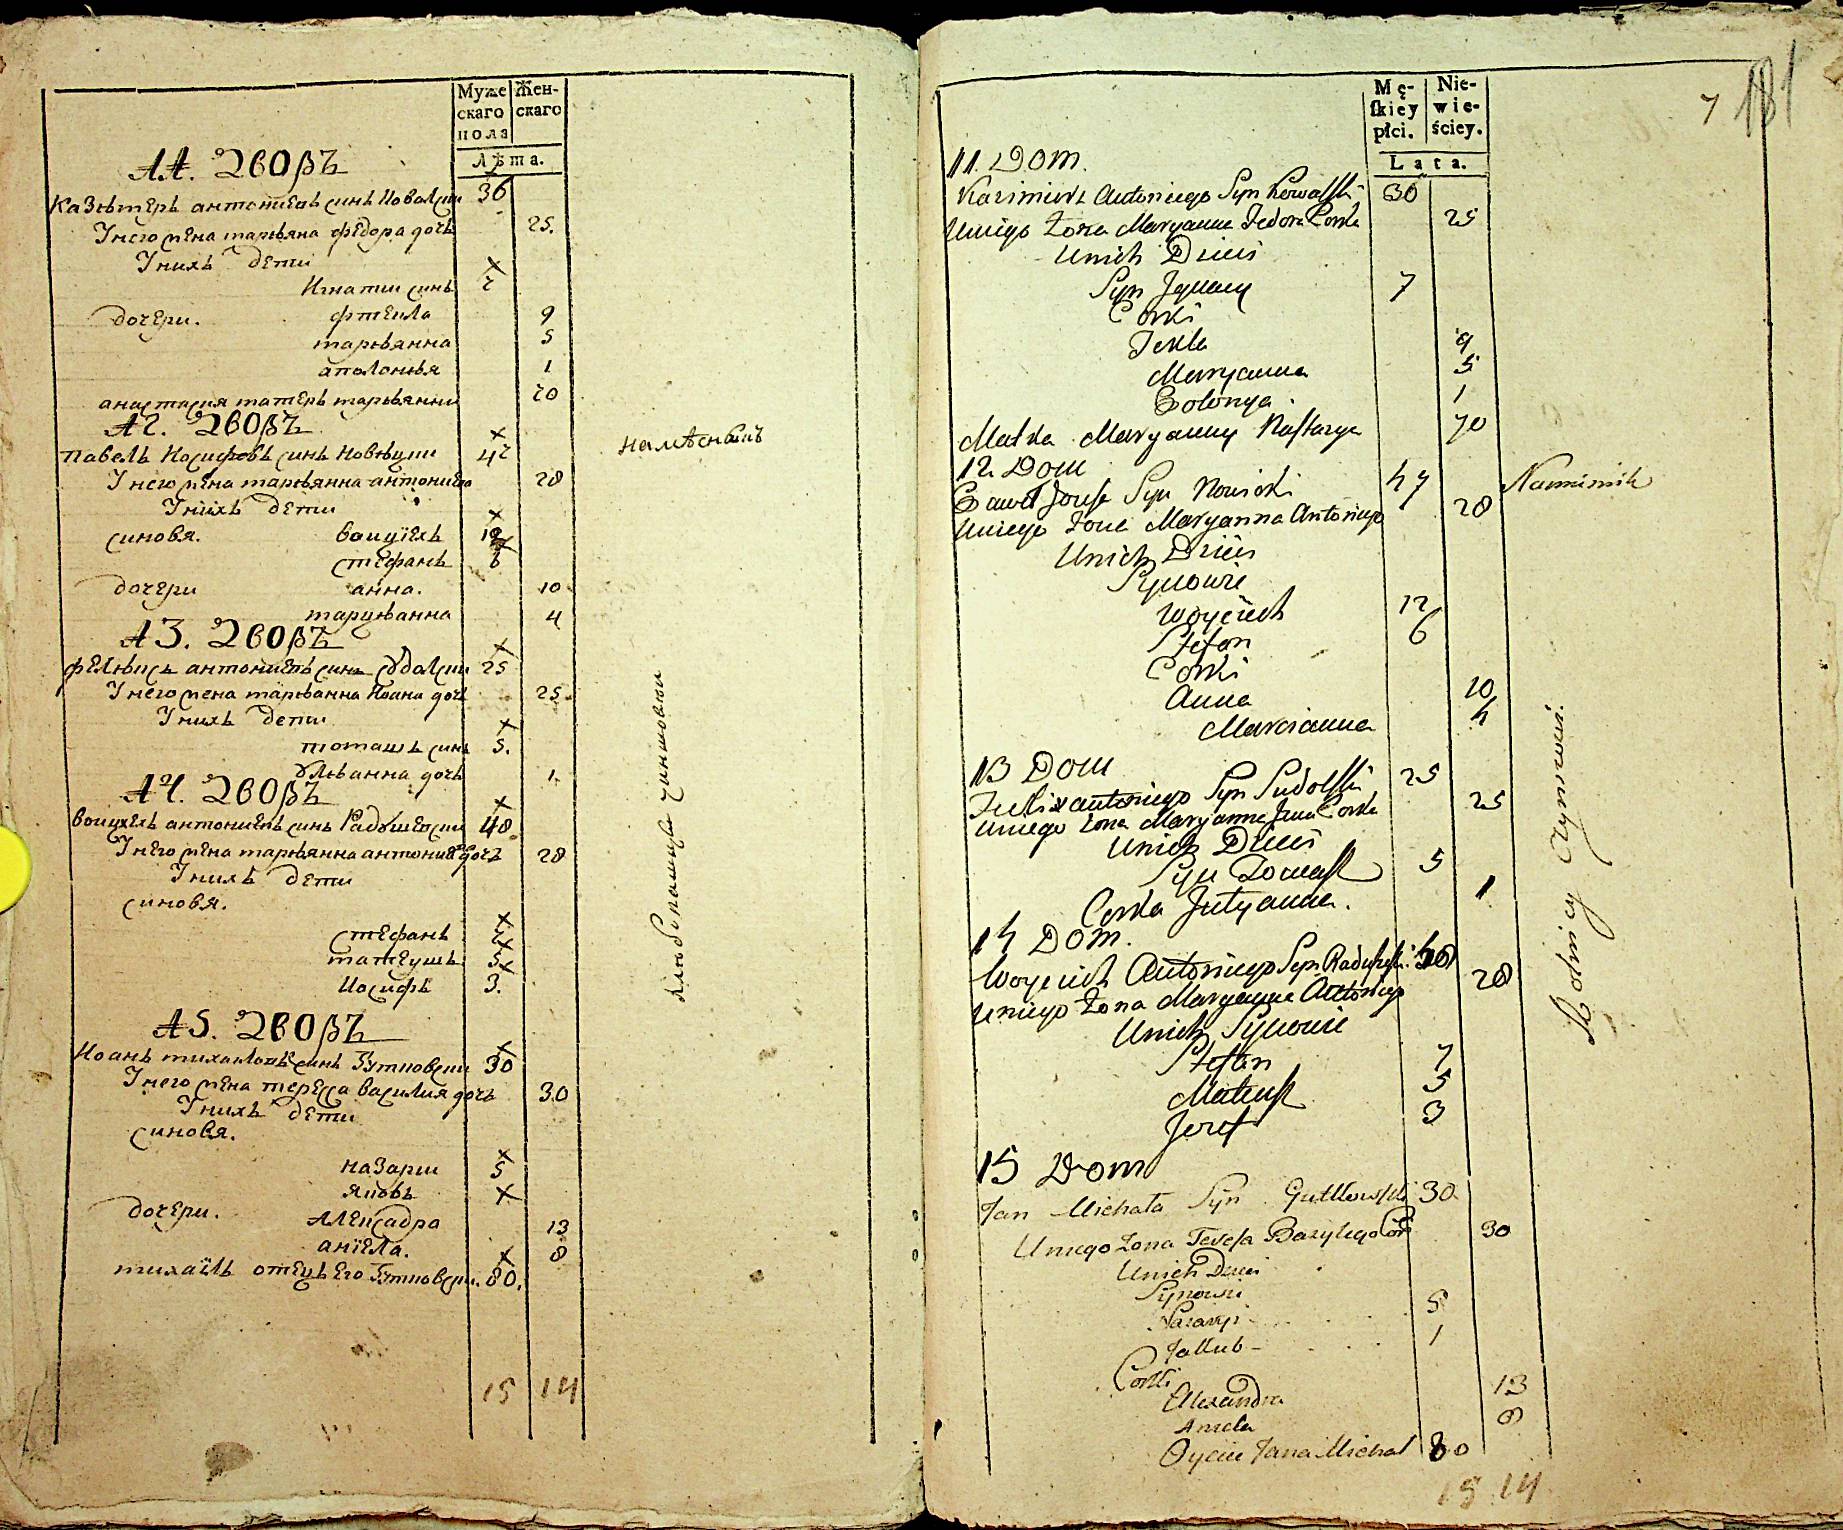 Муже
скаго
пола
Жен-
скаго
Лѣта.
11. Дворъ
Казѣмеръ антониевъ синь Ковалски 36
Унего жена маръяна федора дочь 25.
Унихъ дети
Игнати синь 7
дочери. фтекла 9
маръянна 5
аполонъя 1
анастасия матеръ маръянни 70
12. Дворъ
павелъ Иосифовъ синь Новѣцки 47
Унего жена маръянна антониева 28
Унихъ дети
синовя. воицiехъ 12
стефанъ 6
дочери анна. 10
марцѣанна 4
13. Дворъ
фелѣксъ антониевъ синь Судолски 25
Унего жена маръянна Иоана дочь 25.
Унихъ дети
томашъ синь 5.
Улъянна дочь 1.
14. Дворъ
воицехъ антониевъ синь Радушевски 48
Унего жена маръянна антониева дочь 28
Унихъ дети
синовя.
стефанъ 7
матеушъ 5
Иосифъ 3.
15. Дворъ
Иоанъ михаиловъ синь Гутковски 30
Унего жена тересса василия дочь 30
Унихъ дети
синовя.
назари 5
яковъ
дочери. Александра 13
анiела. 8
михаiлъ отецъ Его Гутковски. 80.
15 14
намѣсникъ
хлѣбопашци чиншовыи
7 181
Mę-
skiey
płci.
Nie-
wie-
ściey.
Lata.
11. Dom.
Kazimierz Antoniego Syn Kowalski 30
Uniego Żona Maryanna Fedora Corka 25
Unich Dzieci
Syn Jgnacy 7
Corki
Tekla 9
Maryanna 5
Polonya. 1
Matka Maryanny Nastazya 70
12 Dom
Paweł Jozefa Syn Nowicki 47
Uniego Zona Maryanna Antoniego 28
Unich Dzieci
Synowie
Woyciech 12
Stefan 6
Corki
Anna 10
Marcianna 4
Namiesnik
13 Dom
Felix Antoniego Syn Sudolski 25
Uniego Zona Maryanna Jana Corka 25
Unich Dzieci
Syn Tomasz 5
Corka Julyanna. 1
14 Dom.
Woyciech Antoniego Syn Raduszewski 48
Uniego Żona Maryanna Antoniego 28
Unich Synowie
Stefan 7
Mateusz 5
Jozef 3
15 Dom
Jan Michała Syn Gutkowski 30
Uniego Zona Teresa Bazylego Cor 30
Unich Dzieci
Synowie
Nazary 5
Jakub - 1
Corki
Alexandra 13
Aniela 8
Oyciec Jana Michał 80
15 14
Rolnicy Czynszowi.